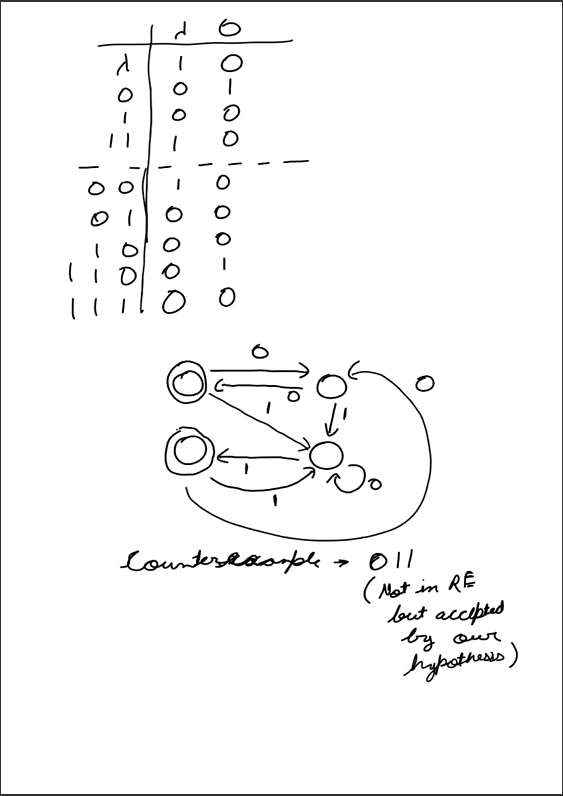 λ 0
λ 1 0
0 0 1
1 0 0
11 1 0
00 1 0
01 0 0
10 0 0
110 0 1
111 0 0
0
0
0
1
1
1
0
1
Counterexample → 011
(Not in RE
but accepted
by our
hypothesis)